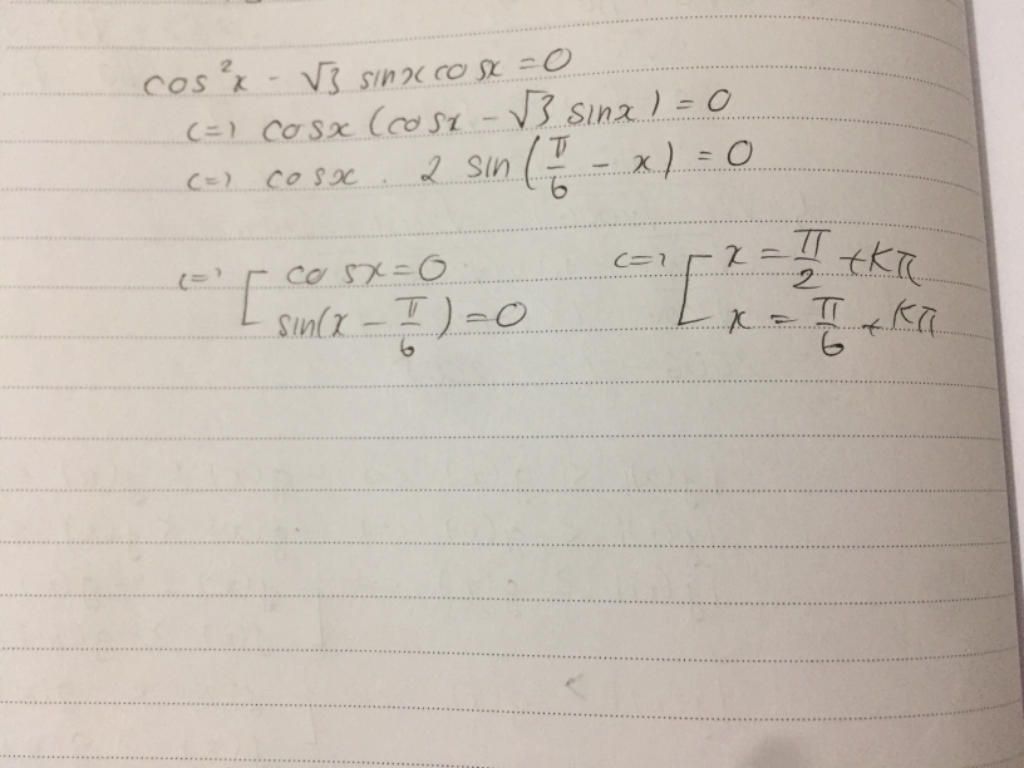 cos²x - √3 sinx cosx = 0
<=> cosx (cosx - √3 sinx) = 0
<=> cosx . 2 sin(π/6 - x) = 0
<=> [ cosx = 0 <=> [ x = π/2 + kπ
sin(x - π/6) = 0 x = π/6 + kπ